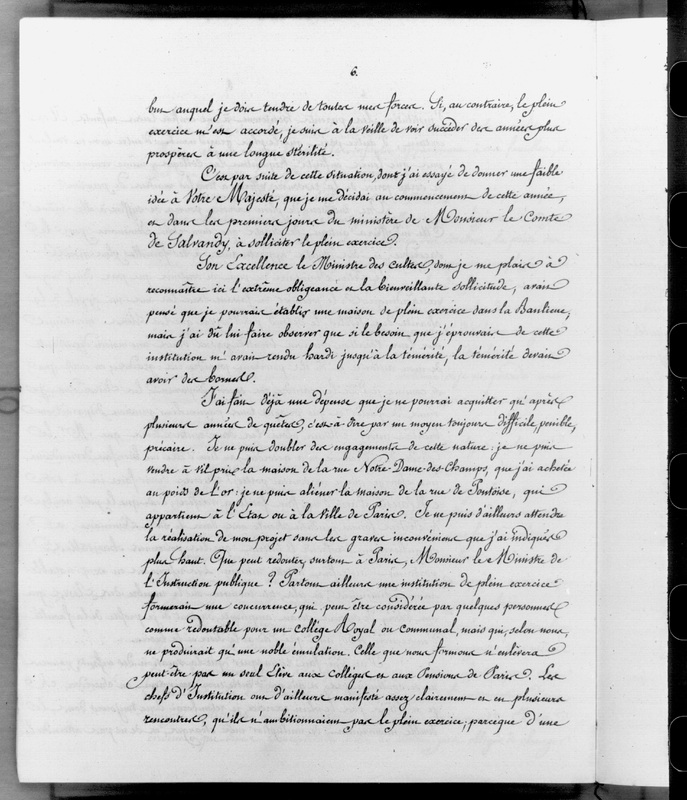 6.
but auquel je dois tendre de toutes mes forces. Si, au contraire, le plein
exercice m'est accordé, je suis à la veille de voir succéder des années plus
prospères à une longue stérilité.
C'est par suite de cette situation, dont j'ai essayé de donner une faible
idée à Votre Majesté, que je me décidai au commencement de cette année,
et dans les premiers jours du ministère de Monsieur le Comte
de Salvandy, à solliciter le plein exercice.
Son Excellence le Ministre des cultes, dont je me plais à
reconnaître ici l'extrême obligeance et la bienveillante sollicitude, avait
pensé que je pourrais établir une maison de plein exercice dans la Banlieue,
mais j'ai dû lui faire observer que si le besoin que j'éprouvais de cette
institution m'avait rendu hardi jusqu'à la témérité, la témérité devait
avoir des bornes.
J'ai fait déjà une dépense que je ne pourrai acquitter qu'après
plusieurs années de quêtes, c'est-à-dire par un moyen toujours difficile, pénible,
précaire. Je ne puis doubler des engagements de cette nature: je ne puis
vendre à vil prix la maison de la rue Notre-Dame-des-Champs, que j'ai achetée
au poids de l'or: je ne puis aliéner la maison de la rue de Pontoise, qui
appartient à l'État ou à la ville de Paris. Je ne puis d'ailleurs attendre
la réalisation de mon projet sans les graves inconvénients que j'ai indiqués
plus haut. Que peut redouter, surtout à Paris, Monsieur le Ministre de
l'Instruction publique? Partout ailleurs une institution de plein exercice
formerait une concurrence, qui peut être considérée par quelques personnes
comme redoutable pour un collège Royal ou communal, mais qui, selon nous,
ne produirait qu'une noble émulation. Celle que nous formons n'enlèvera
peut-être pas un seul Élève aux collèges et aux Pensions de Paris. Les
chefs d'Institution ont d'ailleurs manifesté assez clairement et en plusieurs
rencontres, qu'ils n'ambitionnaient pas le plein exercice, parceque d'une